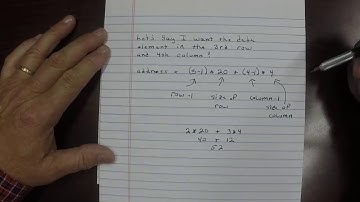 Let's say I want the data
element in the 3rd row
and 4th column?
address = (3-1) * 20 + (4-1) * 4
row-1 size of row column-1 size of column
2 * 20 + 3 * 4
40 + 12
52